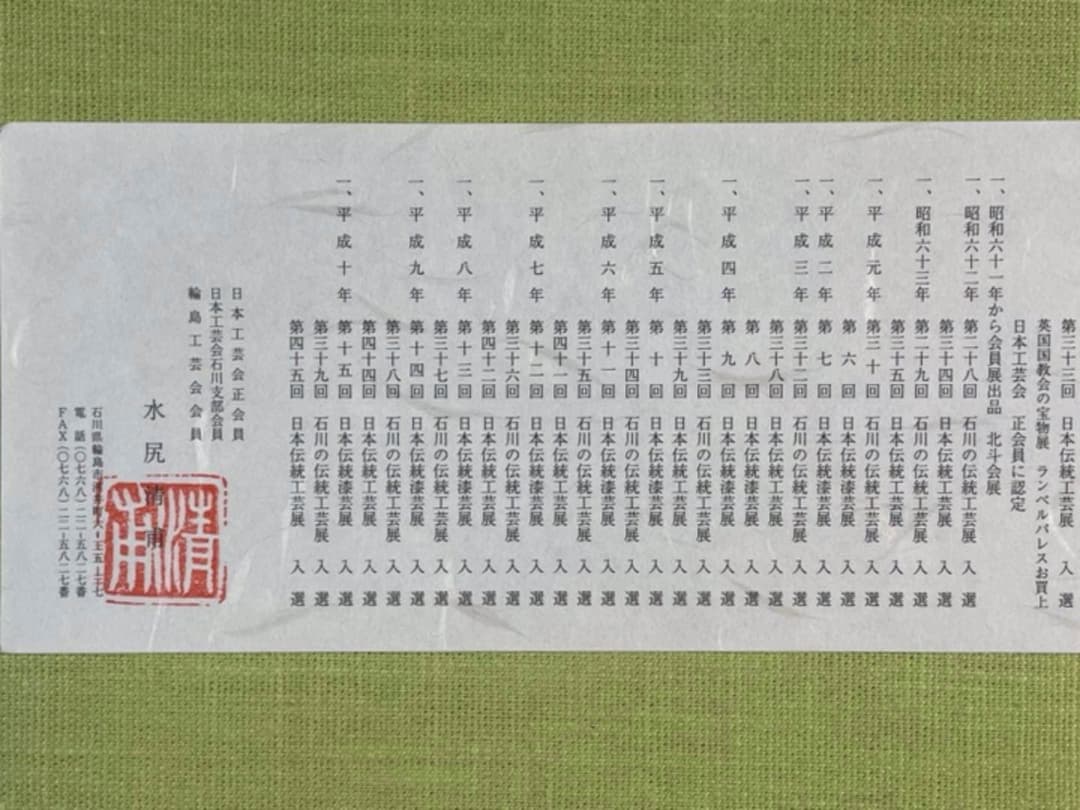 第三十三回 日本伝統工芸展 入選
英国国教会の宝物展 ランベルパレスお買上
日本工芸会 正会員に認定
一、昭和六十一年から会員展出品 北斗会展
一、昭和六十二年 第二十八回 石川の伝統工芸展 入選
第三十四回 日本伝統工芸展 入選
一、昭和六十三年 第二十九回 石川の伝統工芸展 入選
第三十五回 日本伝統工芸展 入選
一、平成元年 第三十回 石川の伝統工芸展 入選
第六回 日本伝統漆芸展 入選
一、平成二年 第七回 日本伝統漆芸展 入選
一、平成三年 第三十二回 石川の伝統工芸展 入選
第三十八回 日本伝統工芸展 入選
第八回 日本伝統漆芸展 入選
一、平成四年 第九回 日本伝統漆芸展 入選
第三十三回 石川の伝統工芸展 入選
第三十九回 日本伝統工芸展 入選
一、平成五年 第十回 日本伝統漆芸展 入選
第三十四回 石川の伝統工芸展 入選
一、平成六年 第十一回 日本伝統漆芸展 入選
第三十五回 石川の伝統工芸展 入選
第四十一回 日本伝統工芸展 入選
一、平成七年 第十二回 日本伝統漆芸展 入選
第三十六回 石川の伝統工芸展 入選
第四十二回 日本伝統工芸展 入選
一、平成八年 第十三回 日本伝統漆芸展 入選
第三十七回 石川の伝統工芸展 入選
一、平成九年 第十四回 日本伝統漆芸展 入選
第三十八回 石川の伝統工芸展 入選
第四十四回 日本伝統工芸展 入選
一、平成十年 第十五回 日本伝統漆芸展 入選
第三十九回 石川の伝統工芸展 入選
第四十五回 日本伝統工芸展 入選
日本工芸会正会員
日本工芸会石川支部会員
輪島工芸会会員
水尻清甫
清甫
石川県輪島市
電話(〇七六八)二二-五八二七番
FAX(〇七六八)二二-五八二七番